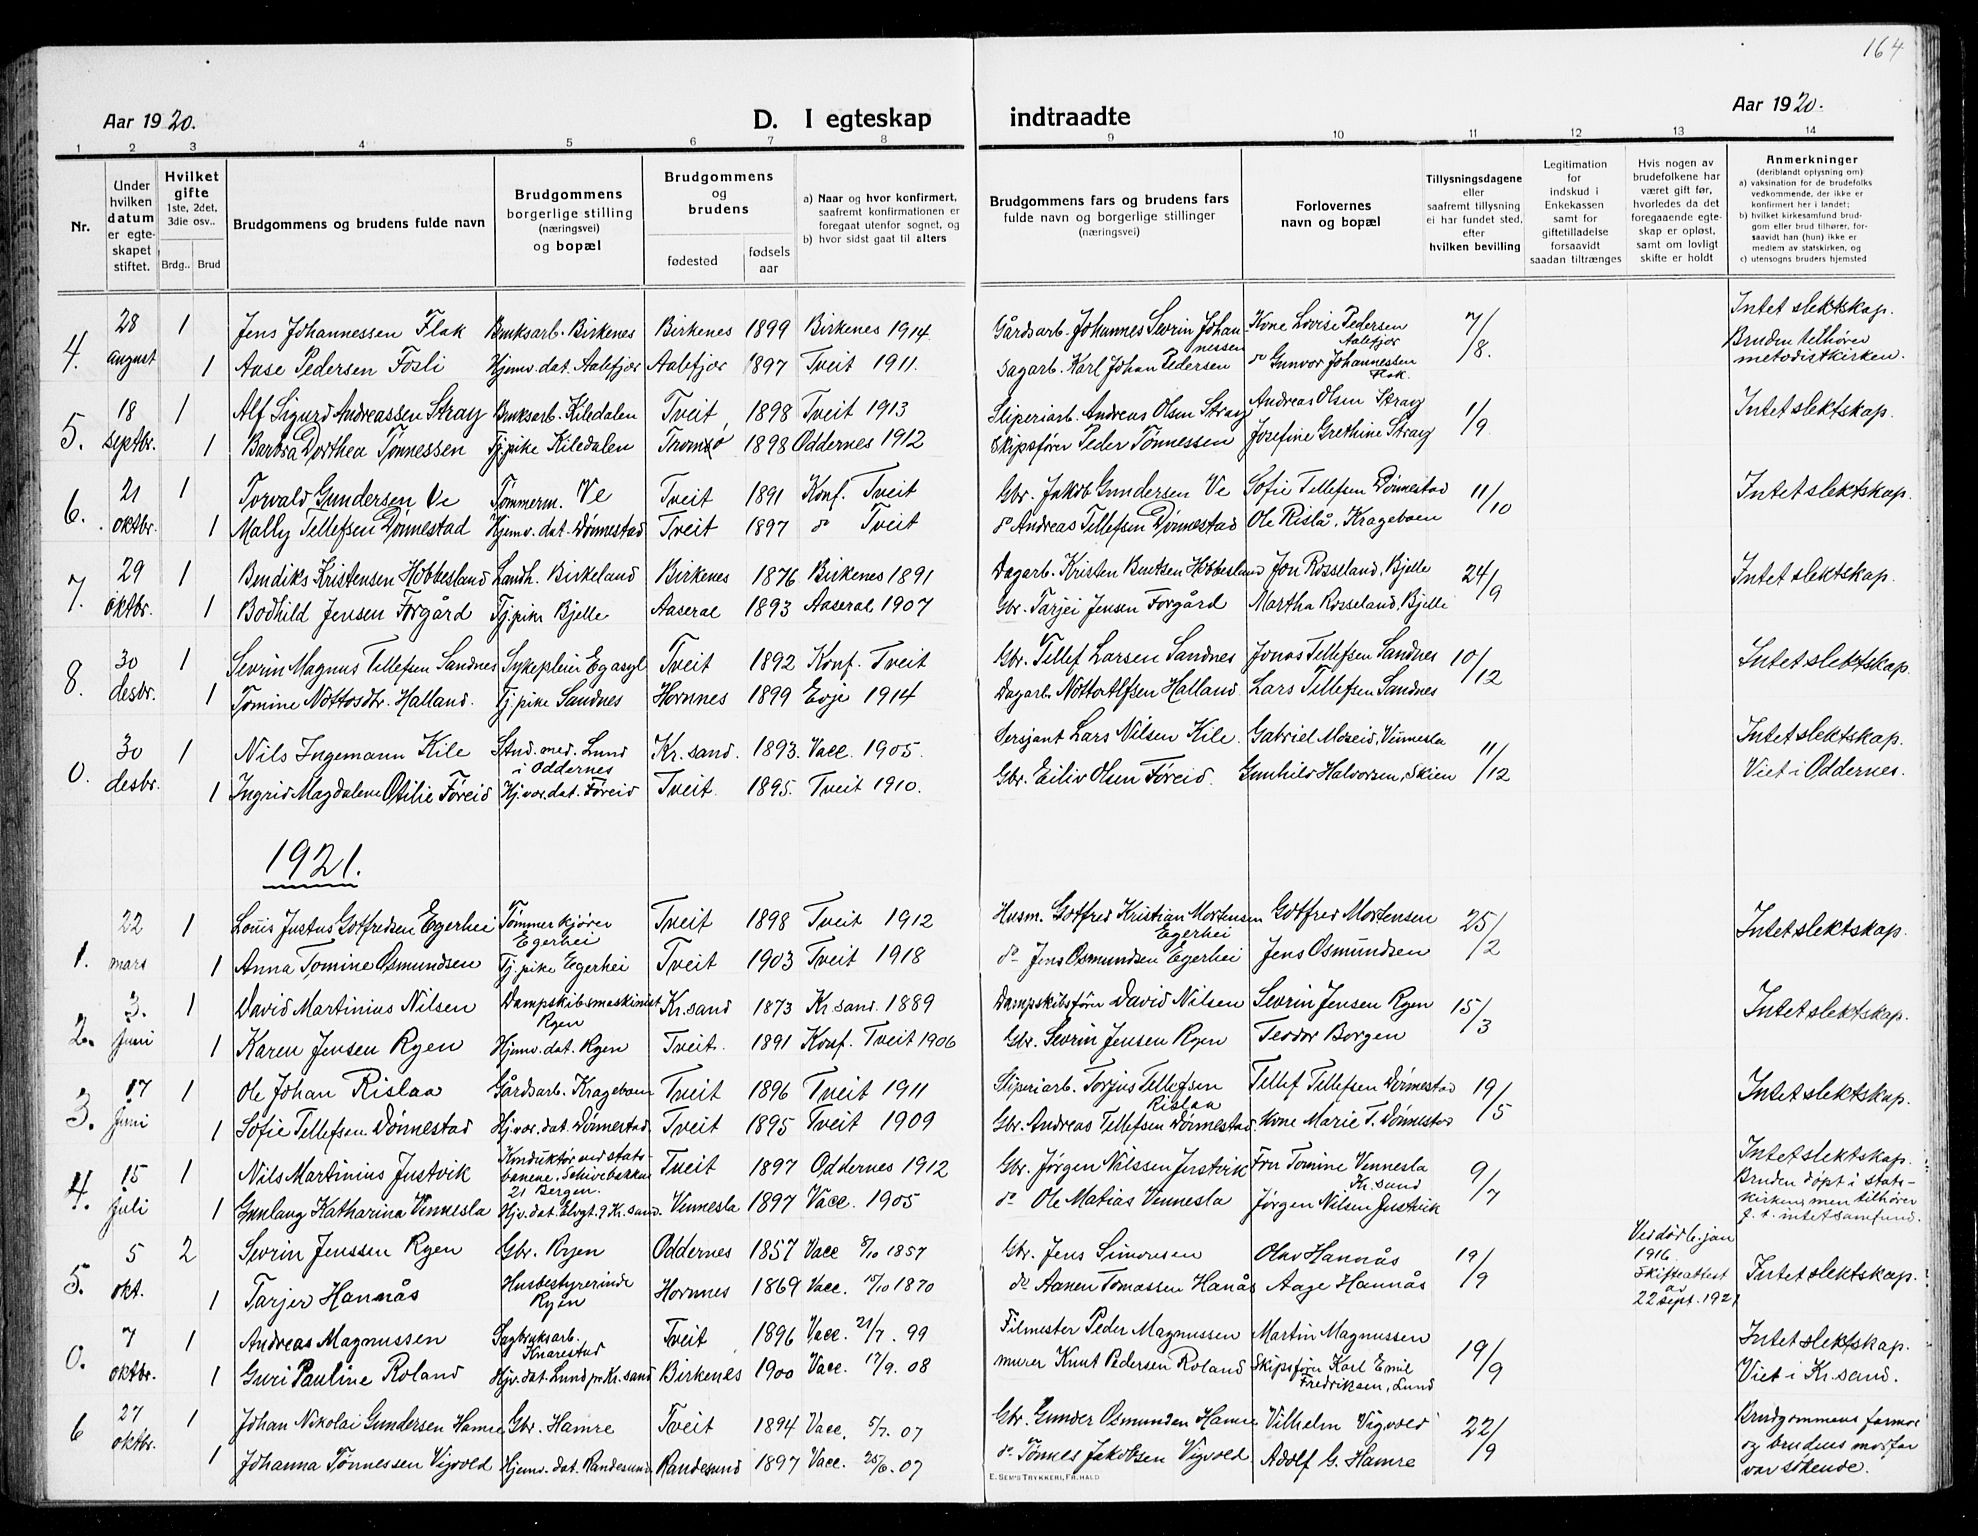 164
Aar 1920.
D. I egteskap indtraadte
Aar 1920.
1 2 3 4 5 6 7 8 9 10 11 12 13 14
Nr.
Under hvilken datum er egteskapet stiftet.
Hvilket gifte 1ste, 2det, 3die osv..
Brdg.. Brud
Brudgommens og brudens fulde navn
Brudgommens borgerlige stilling (næringsvei) og bopæl
Brudgommens og brudens
fødested
fødsels aar
a) Naar og hvor konfirmert, saafremt konfirmationen er foregaat utenfor sognet, og
b) hvor sidst gaat til alters
Brudgommens fars og brudens fars fulde navn og borgerlige stillinger (næringsvei)
Forlovernes navn og bopæl
Tillysningsdagene eller saafremt tillysning ei har fundet sted, efter hvilken bevilling
Legitimation for indskud i Enkekassen samt for giftetilladelse forsaavidt saadan tiltrænges
Hvis nogen av brudefolkene har været gift før, hvorledes da det foregaaende egteskap er opløst, samt om lovlig skifte er holdt
Anmerkninger (deriblandt oplysning om)
a) vaksination for de brudefolks vedkommende, der ikke er konfirmert her i landet;
b) hvilket kirkesamfund brudgom eller brud tilhører, forsaavidt han (hun) ikke er medlem av statskirken, og
c) utensogns bruders hjemsted
4. 28 august 1 Jens Johannessen Flak Bruksarb. Birkenes Birkenes 1899 Birkenes 1914. Gårdsarb. Johannes Sevrin Johannessen Kone Lovise Pedersen Aalefjær 7/8. Intet slektskap.
1 Aase Pedersen Fosli Hjemv. dat. Aalefjær Aalefjær 1897 Tveit 1911. Sagarb. Karl Johan Pedersen do Gunvor Johannessen Flak. Bruden tilhører metodistkirken.
5. 18 septbr. 1 Alf Sigurd Andreassen Stray Bruksarb. Kiledalen Tveit 1898 Tveit 1913 Sliperiarb. Andreas Olsen Stray Andreas Olsen Stray 1/9 Intet slektskap.
1 Barbra Dorthea Tønnessen Tj.pike Kiledalen Tromsø 1898 Oddernes 1912 Skipsfører Peder Tønnessen Josefine Grethine Stray
6. 21 oktbr. 1 Torvald Gundersen Ve Tømmerm. Ve Tveit 1891 Konf. Tveit Gbr. Jakob Gundersen Ve Sofie Tellefsen Dønnestad 11/10 Intet slektskap.
1 Mally Tellefsen Dønnestad Hjemv. dat. Dønnestad Tveit 1897 do Tveit do Andreas Tellefsen Dønnestad Ole Rislå, Krageboen
7. 29 oktbr. 1 Bendiks Kristensen Hobbesland Landh. Birkeland Birkenes 1876 Birkenes 1891 Dagarb. Kristen Bentsen Hobbesland Jon Rosseland, Bjelle 24/9 Intet slektskap.
1 Bodhild Jensen Forgård Tj.pike Bjelle Aaseral 1893 Aaseral 1907 Gbr. Tarjei Jensen Forgård Martha Rosseland, Bjelle
8. 30 desbr. 1 Sevrin Magnus Tellefsen Sandnes Sykepleier Eg asyl Tveit 1892 Konf. Tveit Gbr. Tellef Larsen Sandnes Jonas Tellefsen Sandnes 10/12 Intet slektskap.
1 Tomine Nottosdtr. Halland. Tj.pike Sandnes Hornnes 1899 Evje 1914 Dagarb. Notto Alfsen Halland. Lars Tellefsen Sandnes
0. 30 desbr. 1 Nils Ingemann Kile Stud. med. Lund i Oddernes Kr.sand. 1893. Vacc. 1905. Sersjant Lars Nilsen Kile. Gabriel Moseid, Vennesla 11/12 Intet slektskap. Viet i Oddernes.
1 Ingrid Magdalene Otilie Føreid Hj.vær. dat. Føreid Tveit. 1895. Tveit 1910. Gbr. Eiliv Olsen Føreid. Gunhild Halvorsen, Skien
1921.
1. 22 mars 1 Louis Justus Gotfredsen Egerhei Tømmerkjører Egerhei Tveit 1898 Tveit 1912 Husm. Gotfred Kristian Mortensen Egerhei Gotfred Mortensen 25/2 Intet slektskap.
1 Anna Tomine Osmundsen Tj.pike Egerhei Tveit 1903 Tveit 1918 do Jens Osmundsen Egerhei Jens Osmundsen
2. 3. Juni 1 David Martinius Nilsen Dampskibsmaskinist Ryen Kr.sand 1873 Kr.sand. 1889 Dampskibsfører David Nilsen Sevrin Jensen Ryen 15/3 Intet slektskap.
1 Karen Jensen Ryen Hjemv. dat. Ryen Tveit. 1891 Konf. Tveit 1906 Gbr. Sevrin Jensen Ryen Teodor Borgen
3. 17 Juni 1 Ole Johan Rislaa Gårdsarb. Krageboen Tveit 1896 Tveit 1911 Sliperiarb. Torjus Tellefsen Rislaa Tellef Tellefsen Dønnestad 19/5 Intet slektskap.
1 Sofie Tellefsen Dønnestad Hj.vær. dat. Dønnestad. Tveit 1895 Tveit 1909 Gbr. Andreas Tellefsen Dønnestad. Kone Marie T. Dønnestad
4. 15 Juli 1 Nils Martinius Justvik Konduktør ved statsbanene, Schivebakken 21 Bergen. Tveit 1897 Oddernes 1912 Gbr. Jørgen Nilssen Justvik Fru Tomine Vennesla Kr.sand 9/7 Intet slektskap.
1 Gunlaug Katharina Vennesla Hjv. dat. Elvgt. 7 Kr.sand. Vennesla 1897 Vacc. 1905 do Ole Matias Vennesla Jørgen Nilsen Justvik Bruden døpt i statskirken, men tilhører f. t. intet samfund.
5. 5 okt. 2 Sevrin Jenssen Ryen Gbr. Ryen Oddernes 1857 Vacc 8/10 1857 Gbr. Jens Simonsen Olav Hannås 19/9 Ved død 6. jan 1916. Skifteattest av 22 sept. 1921 Intet slektskap.
1 Tarjer Hannås Husbestyrerinde Ryen Hornnes 1869 Vacc. 15/10 1870 do Aanen Tomassen Hanås Aage Hannås
0. 7 oktbr. 1 Andreas Magnussen Sagbruksarb. Knarestad Tveit 1896 Vacc. 21/7. 99 Filmester Peder Magnussen Martin Magnussen 19/9 Intet slektskap. Viet i Kr.sand.
1 Guri Pauline Roland Hjv. dat. Lund pr Kr.sand Birkenes 1900 Vacc. 17/9. 08 murer Knut Pedersen Roland Skipsfører Karl Emil Fredriksen, Lund
6 27 oktbr. 1 Johan Nikolai Gundersen Hamre Gbr. Hamre Tveit 1894 Vacc. 5/7. 07 Gbr. Gunder Osmundsen Hamre Vilhelm Vigvold 22/9 Brudgommens farmor og brudens morfar var søskende.
1 Johanna Tønnessen Vigvold Hjemv. dat. Randesund Randesund 1897 Vacc. 25/6. 07 do Tønnes Jakobsen Vigvold Adolf G. Hamre
E. SEM'S TRYKKERI, FR.HALD